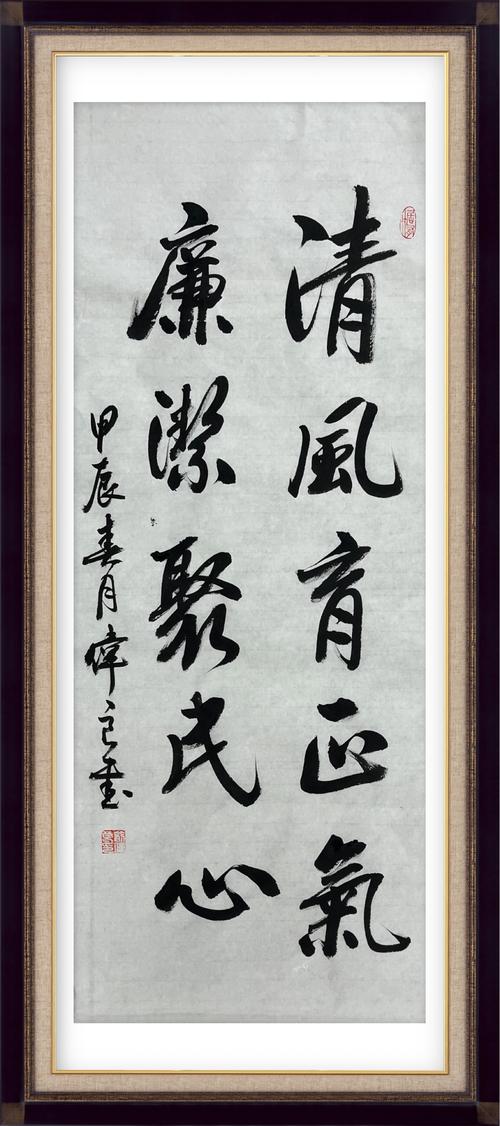 清風育正氣
廉潔聚民心
甲辰春月偉良書